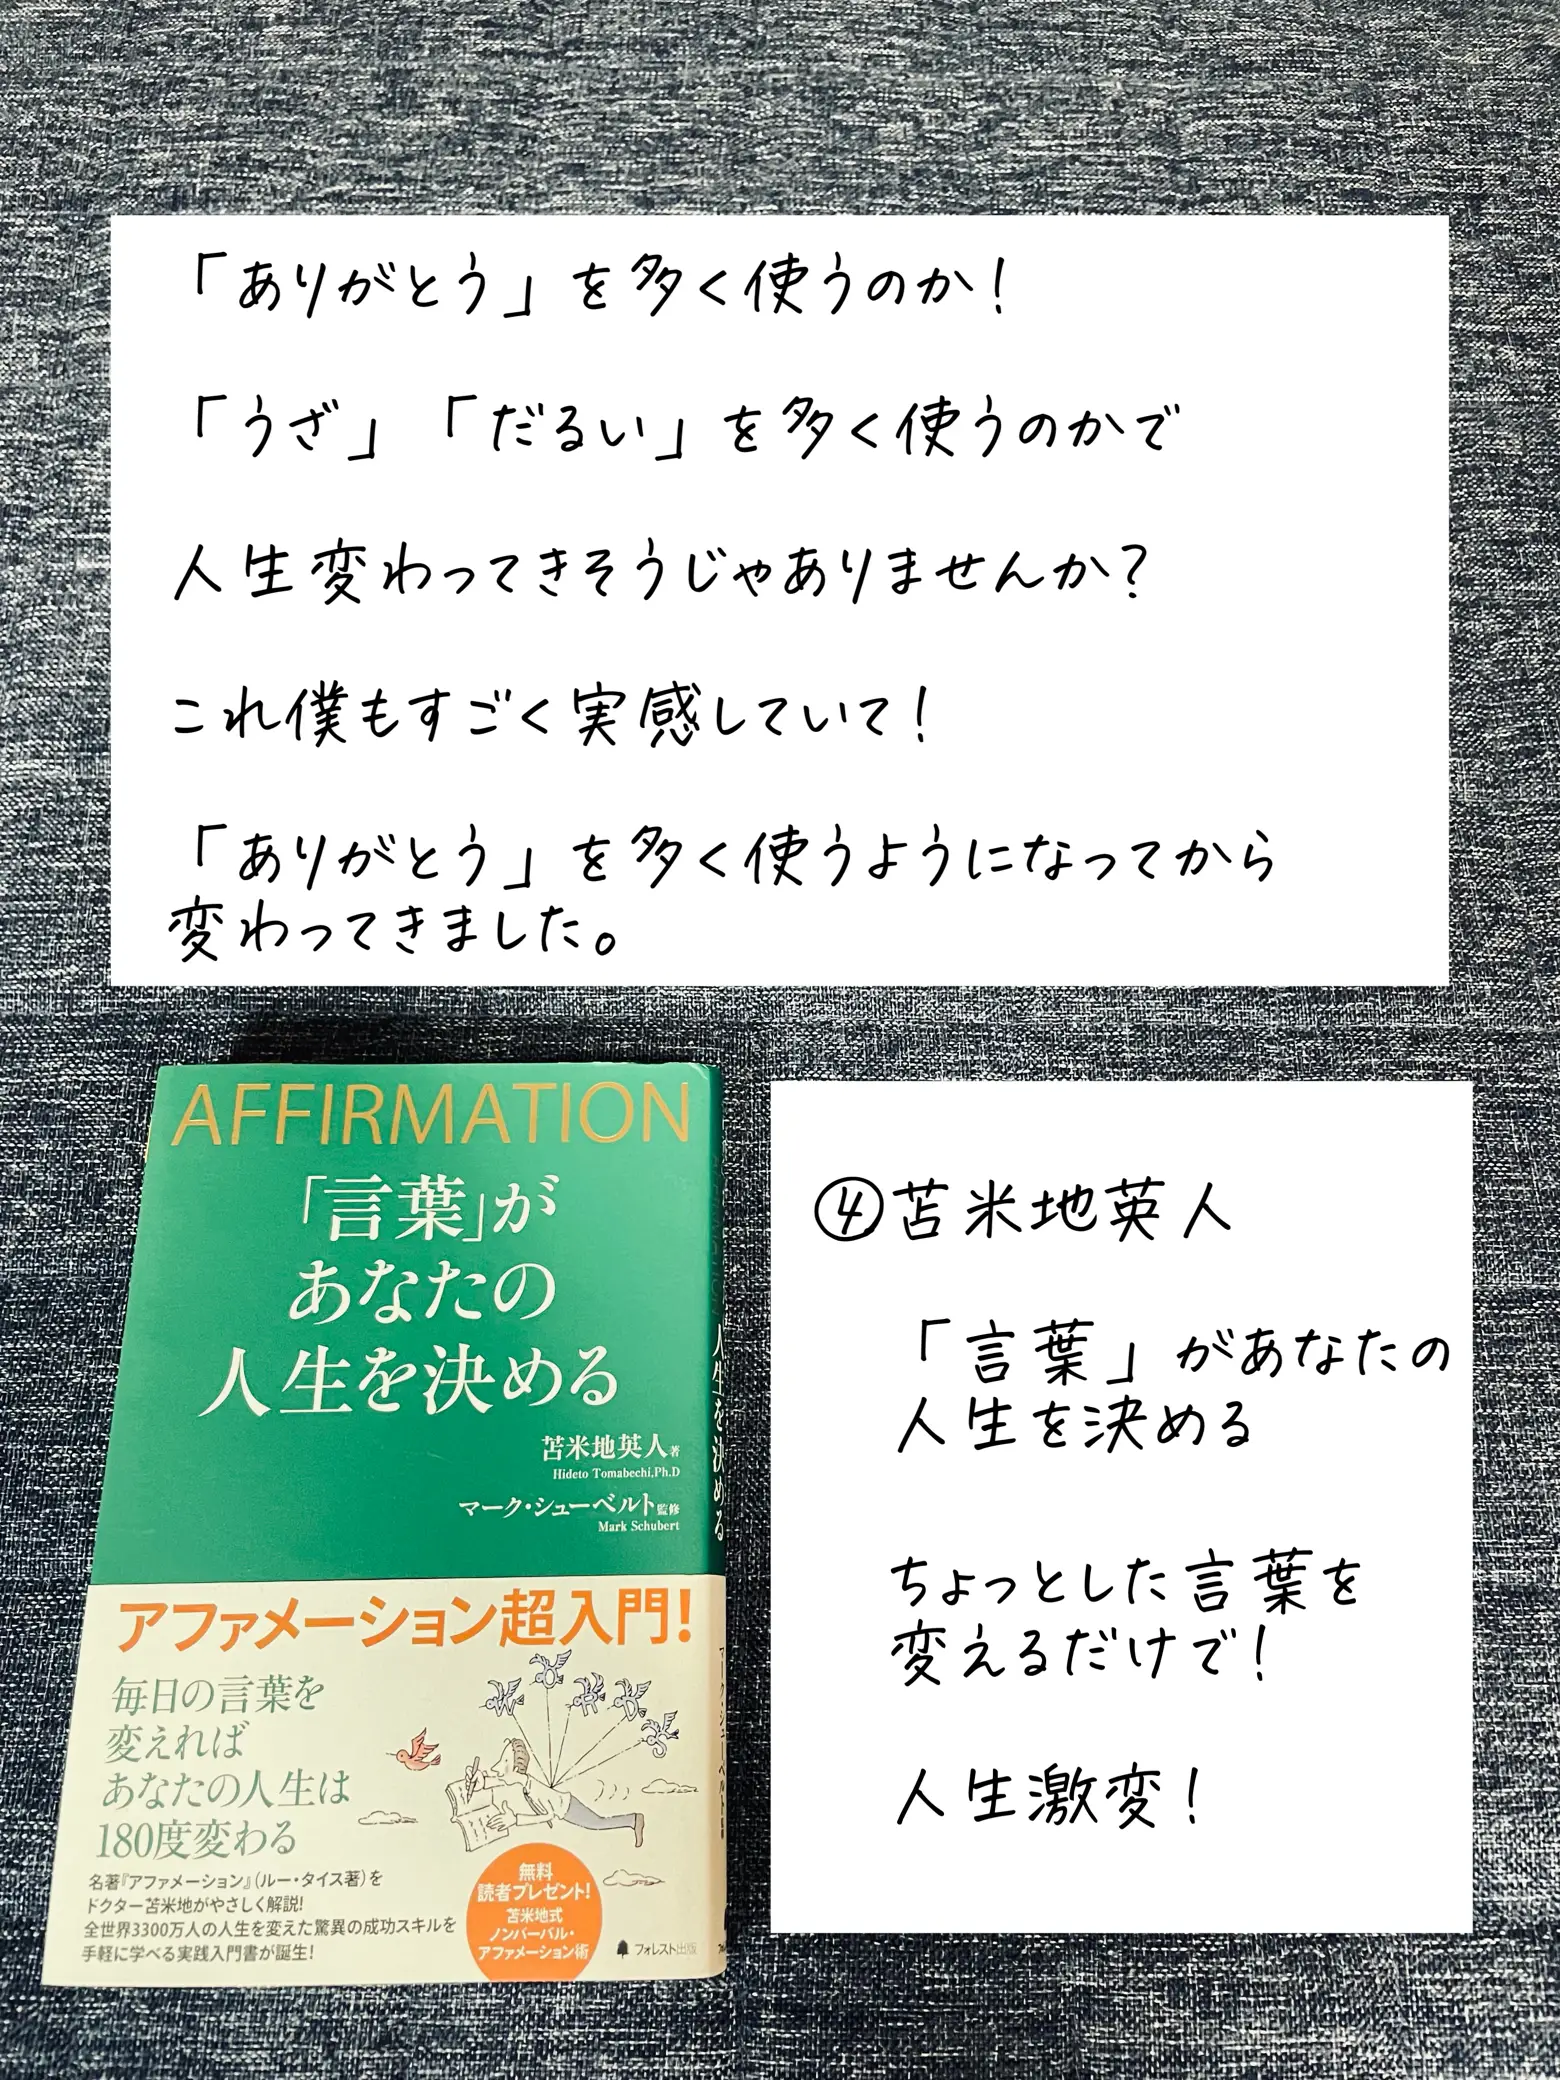 「ありがとう」を多く使うのか！
「うざ」「だるい」を多く使うのかで
人生変わってきそうじゃありませんか？
これ僕もすごく実感していて！
「ありがとう」を多く使うようになってから
変わってきました。
AFFIRMATION
「言葉」が
あなたの
人生を決める
苫米地英人 著
Hideto Tomabechi,Ph.D
マーク・シューベルト 監修
Mark Schubert
アファメーション超入門！
毎日の言葉を
変えれば
あなたの人生は
180度変わる
WORDS
名著『アファメーション』（ルー・タイス著）を
ドクター苫米地がやさしく解説！
全世界3300万人の人生を変えた驚異の成功スキルを
手軽に学べる実践入門書が誕生！
無料
読者プレゼント！
苫米地式
ノンバーバル・
アファメーション術
フォレスト出版
人生を決める
④苫米地英人
「言葉」があなたの
人生を決める
ちょっとした言葉を
変えるだけで！
人生激変！